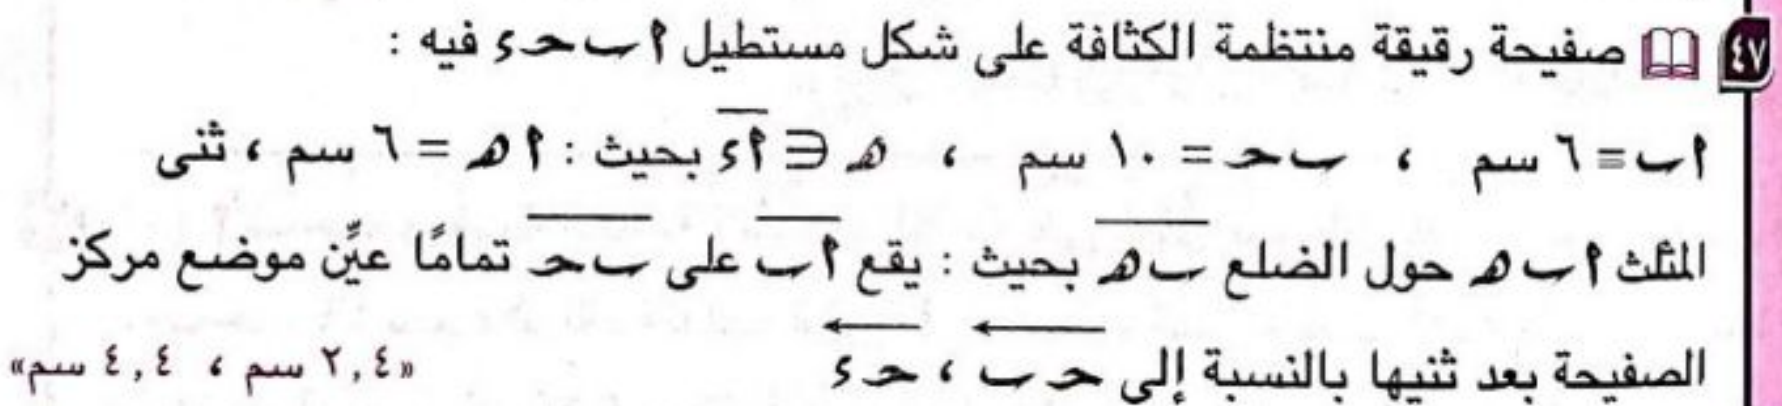 ٤٧ صفيحة رقيقة منتظمة الكثافة على شكل مستطيل ا ب ح ء فيه :
ا ب = ٦ سم ، ب ح = ١٠ سم ، ه ∈ ا ء بحيث : ا ه = ٦ سم ، ثنى
المثلث ا ب ه حول الضلع ب ه بحيث : يقع ا ب على ب ح تمامًا عيِّن موضع مركز
الصفيحة بعد ثنيها بالنسبة إلى ح ب ، ح ء «٢,٤ سم ، ٤,٤ سم»